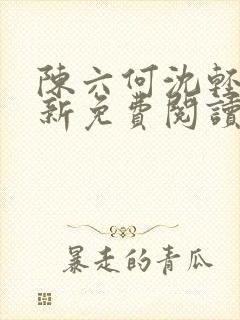 陳六何沈輕
新免費閱讀
暴走的青瓜